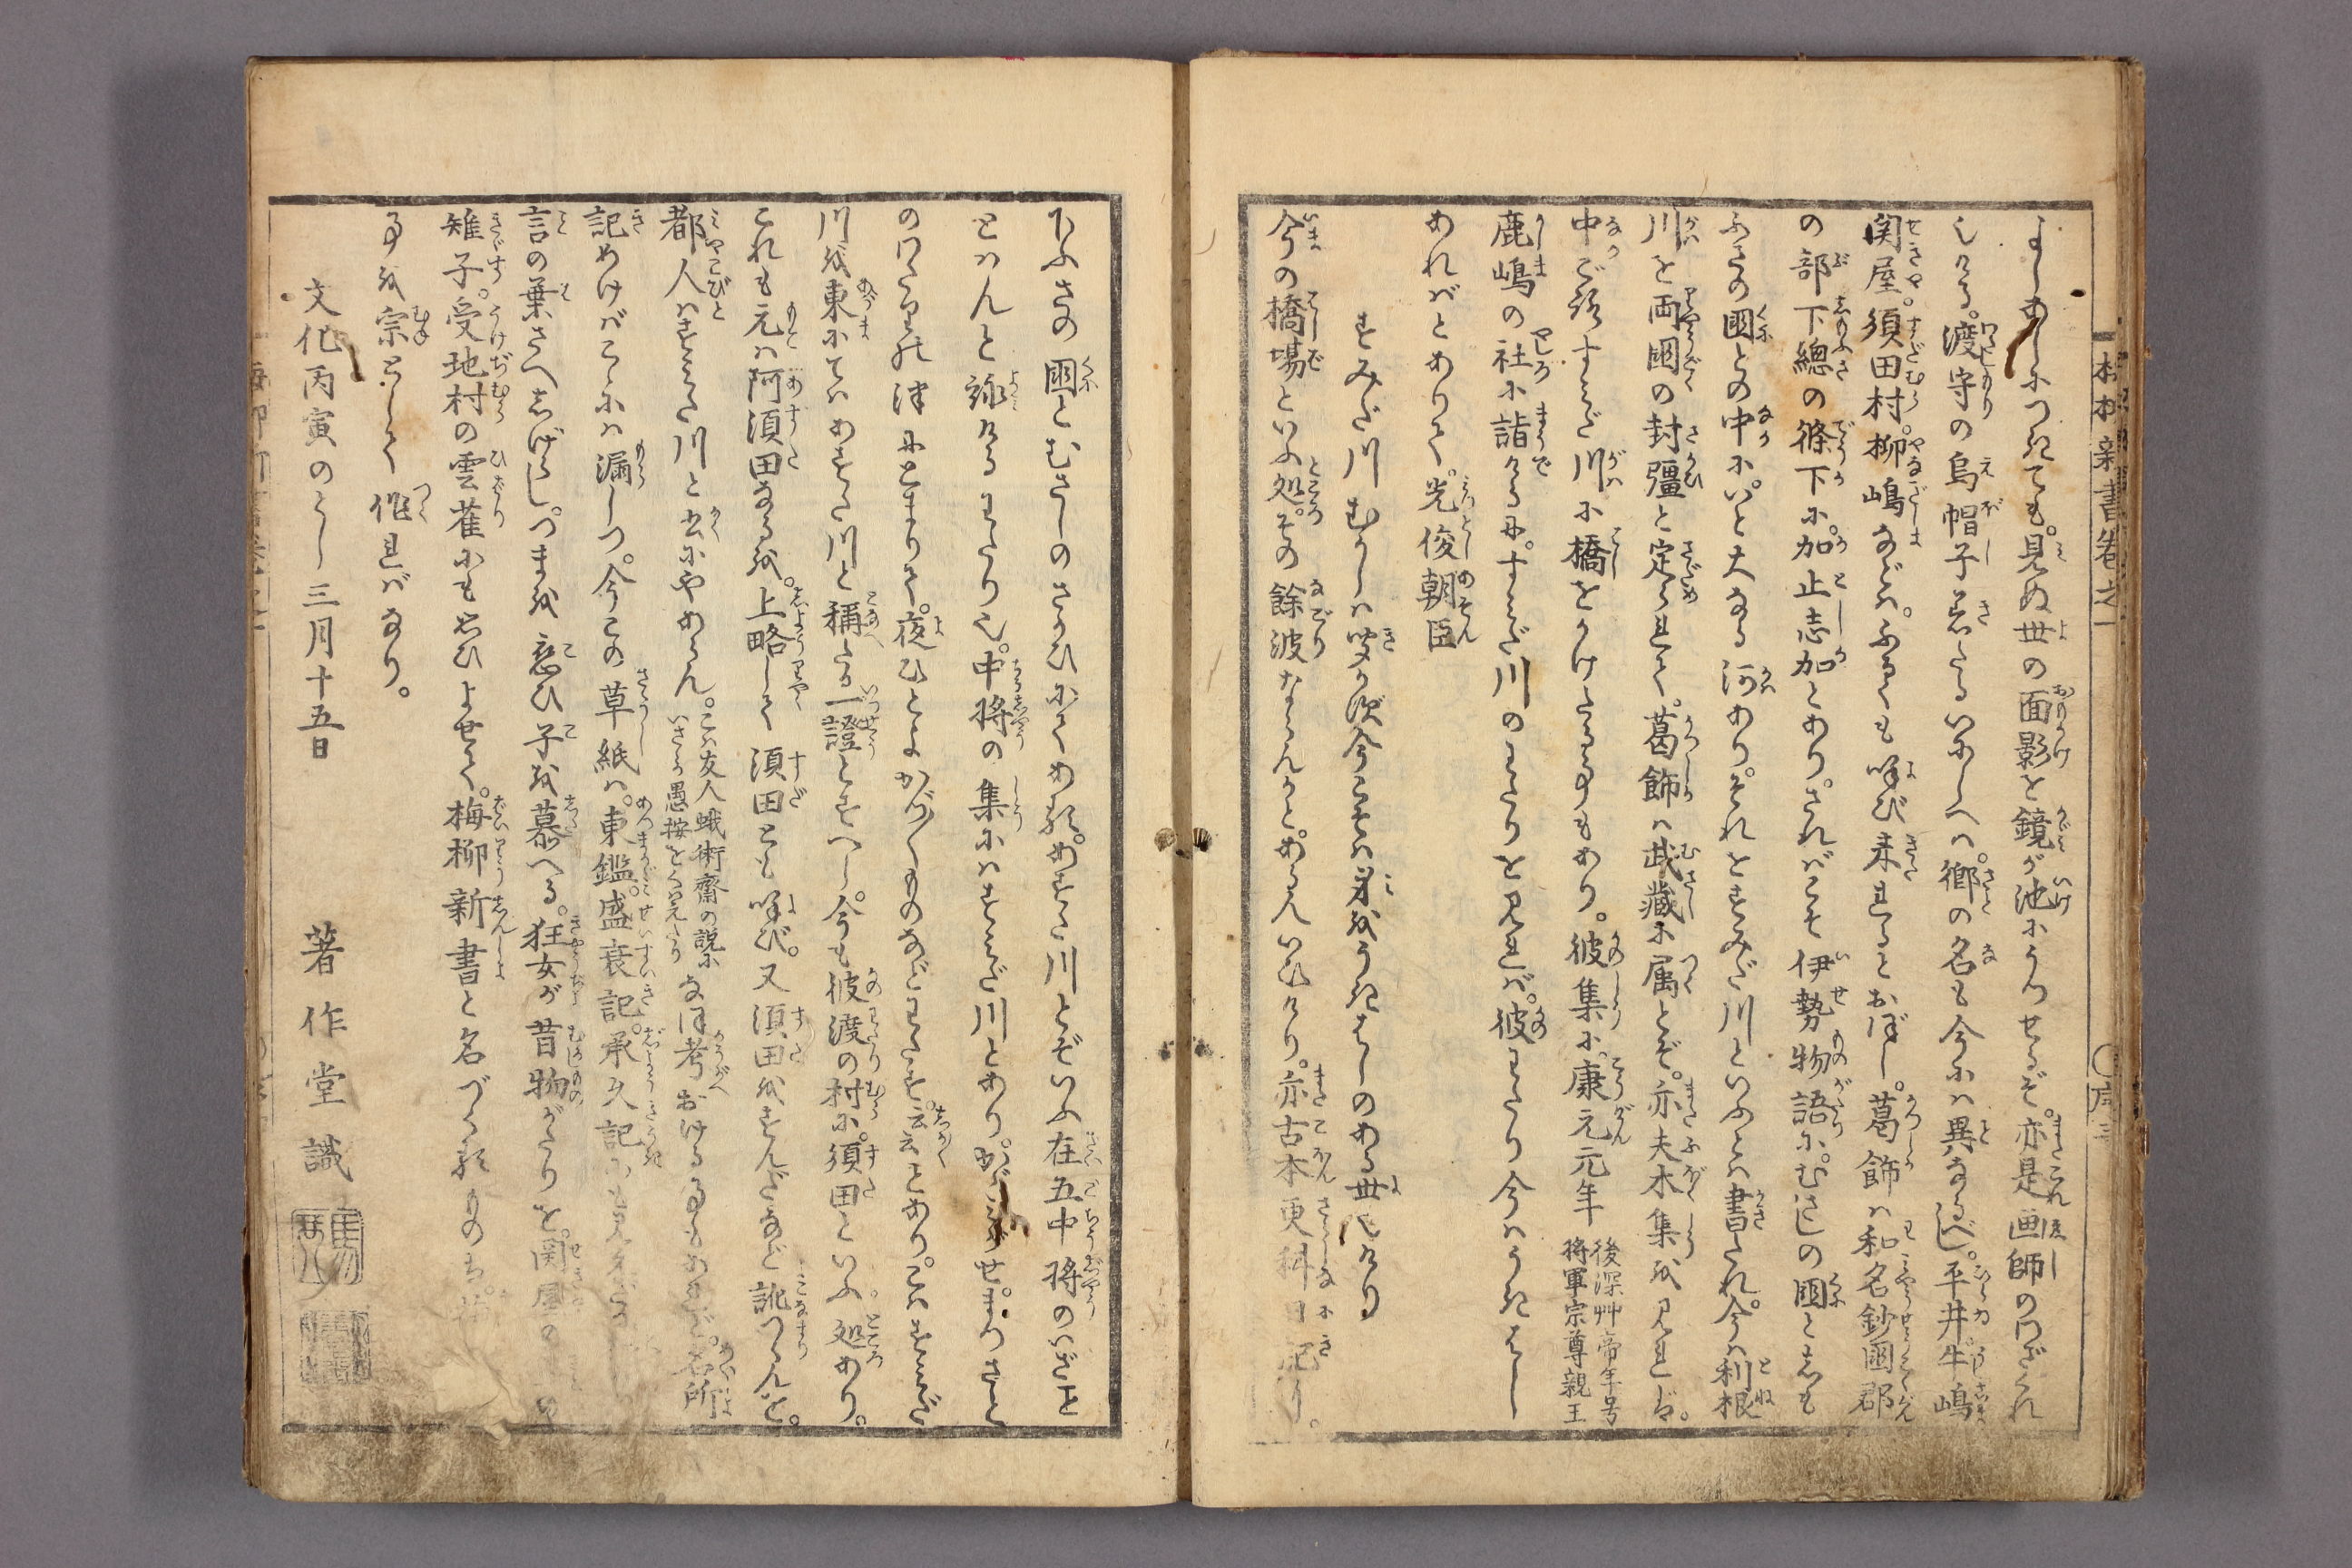 よしあしにつけても。見ぬ世の面影を鏡が池にうつせるぞ。亦是画師のわざくれ
也ける。渡守の烏帽子着たるいにしへは。郷の名も今には異なるべし。平井牛嶋
関屋。須田村。柳嶋などは。ふるくも呼び来れるとおぼし。葛飾は和名鈔國郡
の部下總の條下に。加止志加とあり。さればこそ伊勢物語に。むさしの國としも
ふさの國との中に。いと大なる河あり。それをすみだ川といふとは書たれ。今は利根
川を両國の封彊と定られて。葛飾は武蔵に属とぞ。亦夫木集を見れば。
中ごろすみだ川に橋をかけたる事もあり。彼集に。康元元年後深艸帝年号将軍宗尊親王
鹿嶋の社に詣けるに。すみだ川のわたりを見れば。彼わたり今はうきはし
あればとありて。光俊朝臣
すみだ川むかしは聞か須今こそは身をうきはしのある世也けり
今の橋場といふ処。その餘波ならんかと。ある人いひけり。亦古本更科日記に。
下ふさの國とむさしのさかひにてある。あすだ川とぞいふ在五中将のいざこと
とはんと詠けるわたり也。中将の集にはすみだ川とあり。かゞみがせ。まつさと
のわたりの津にとまりて。夜ひとよかつ〴〵ものなどわたす。云云とあり。こはすみだ
川を東にてはあすだ川と稱たる一證とすべし。今も彼渡の村に。須田といふ。処あり。
これも元は阿須田なるを。上略して須田とも呼び。又須田をすんだなど訛つらんを。
都人はすみだ川と書にやあらん。こは友人蛾術齋の説にいさゝか愚按をくはえたりなほ考おける事もあれど。名所
記めけばこゝには漏しつ。今この草紙は。東鑑。盛衰記。承久記
言の葉さへしげらし。つまを恋ひ子を慕へる。狂女が昔物がたりを。関屋の
雉子。受地村の雲雀にも思ひよせて。梅柳新書と名づくるものは。
事を宗として作ればなり。
文化丙寅のとし三月十五日　著作堂識